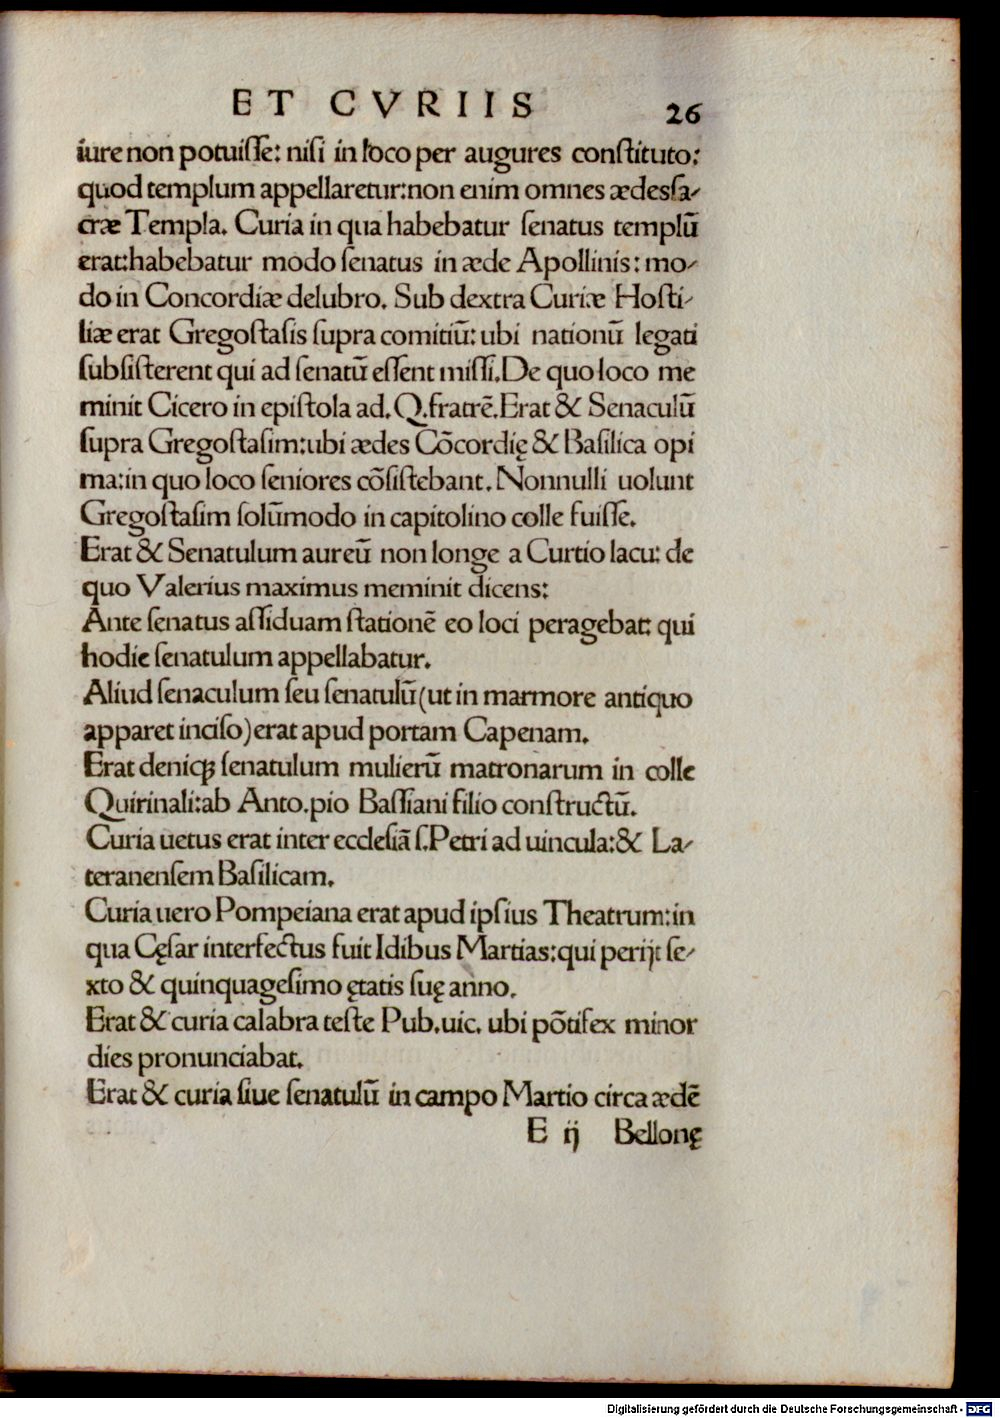 ET CVRIIS 26
iure non potuiſſe: niſi in loco per augures conſtituto:
quod templum appellaretur:non enim omnes ædesſa-
cræ Templa. Curia in qua habebatur ſenatus templũ
erat:habebatur modo ſenatus in æde Apollinis: mo-
do in Concordiæ delubro. Sub dextra Curiæ Hoſti-
liæ erat Gregoſtaſis ſupra comitiũ: ubi nationũ legati
ſubſiſterent qui ad ſenatũ eſſent miſſi.De quo loco me
minit Cicero in epiſtola ad.Q.fratrẽ.Erat & Senaculũ
ſupra Gregoſtaſim:ubi ædes Cõcordię & Baſilica opi
ma:in quo loco ſeniores cõſiſtebant. Nonnulli uolunt
Gregoſtaſim ſolũmodo in capitolino colle fuiſſe.
Erat & Senatulum aureũ non longe a Curtio lacu: de
quo Valerius maximus meminit dicens:
Ante ſenatus aſſiduam ſtationẽ eo loci peragebat: qui
hodie ſenatulum appellabatur.
Aliud ſenaculum ſeu ſenatulũ(ut in marmore antiquo
apparet inciſo)erat apud portam Capenam.
Erat deniqꝫ ſenatulum mulierũ matronarum in colle
Quirinali:ab Anto.pio Baſſiani filio conſtructũ.
Curia uetus erat inter eccleſiã ſ.Petri ad uincula:& La-
teranenſem Baſilicam.
Curia uero Pompeiana erat apud ipſius Theatrum:in
qua Cęſar interfectus fuit Idibus Martias:qui perijt ſe-
xto & quinquageſimo ętatis ſuę anno.
Erat & curia calabra teſte Pub.uic. ubi põtifex minor
dies pronunciabat.
Erat & curia ſiue ſenatulũ in campo Martio circa ædẽ
E ij Bellonę
Digitalisierung gefördert durch die Deutsche Forschungsgemeinschaft - DFG